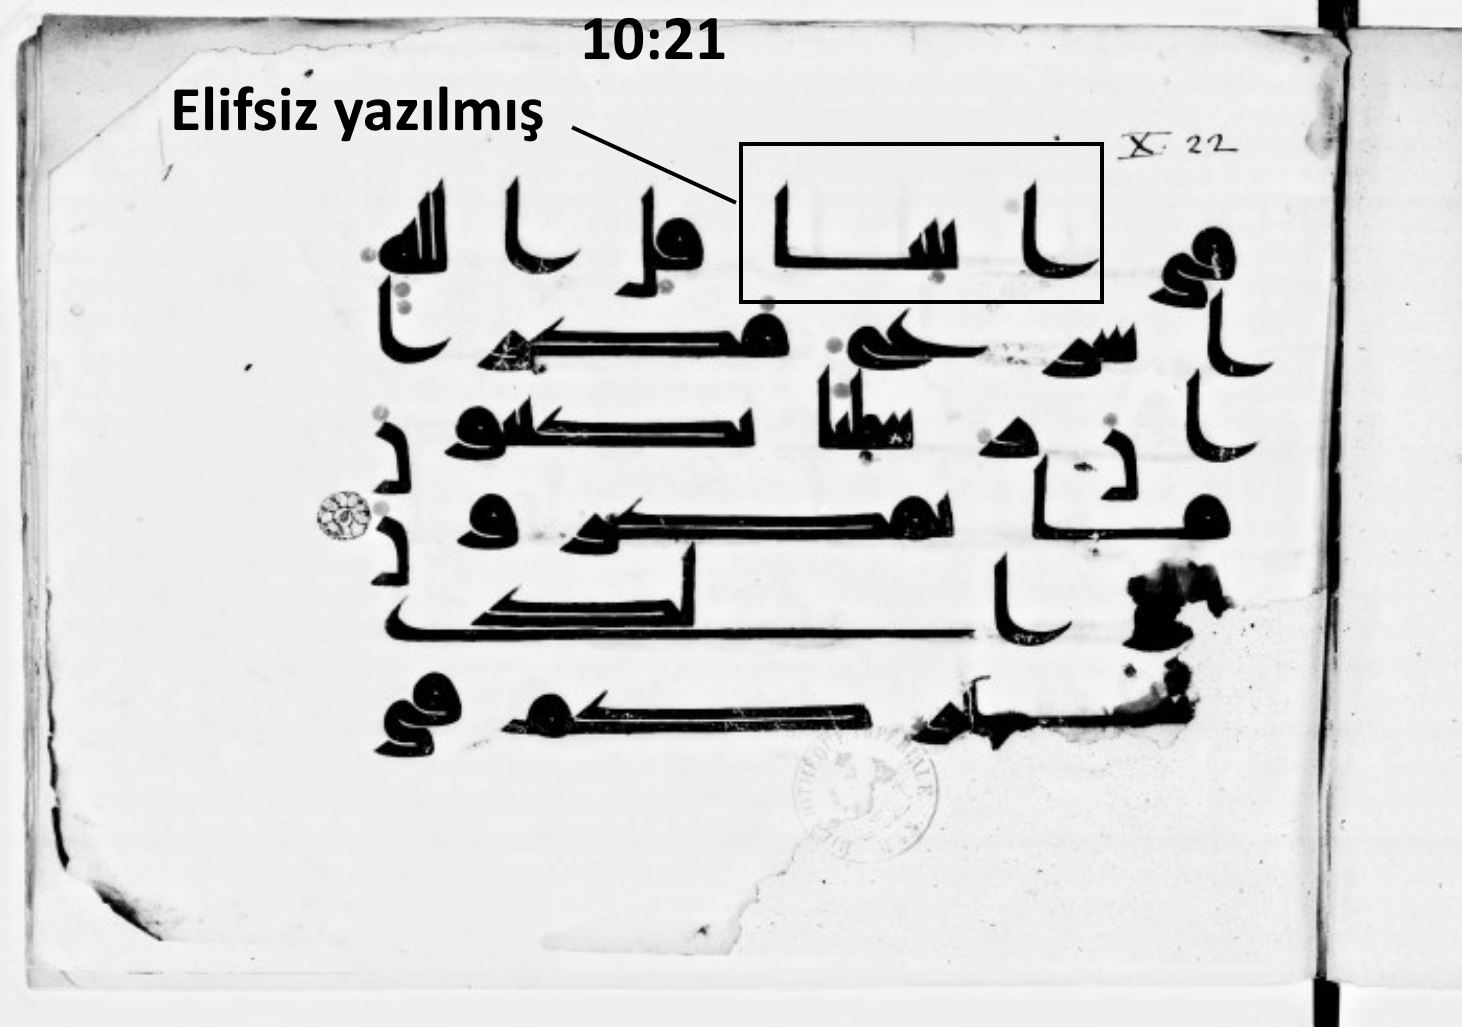 10:21
Elifsiz yazılmış
X. 22
في ايتنا قل الله
اسرع مكرا
ان رسلنا يكتبون
ما تمكرون
هو الذي
يسيركم في